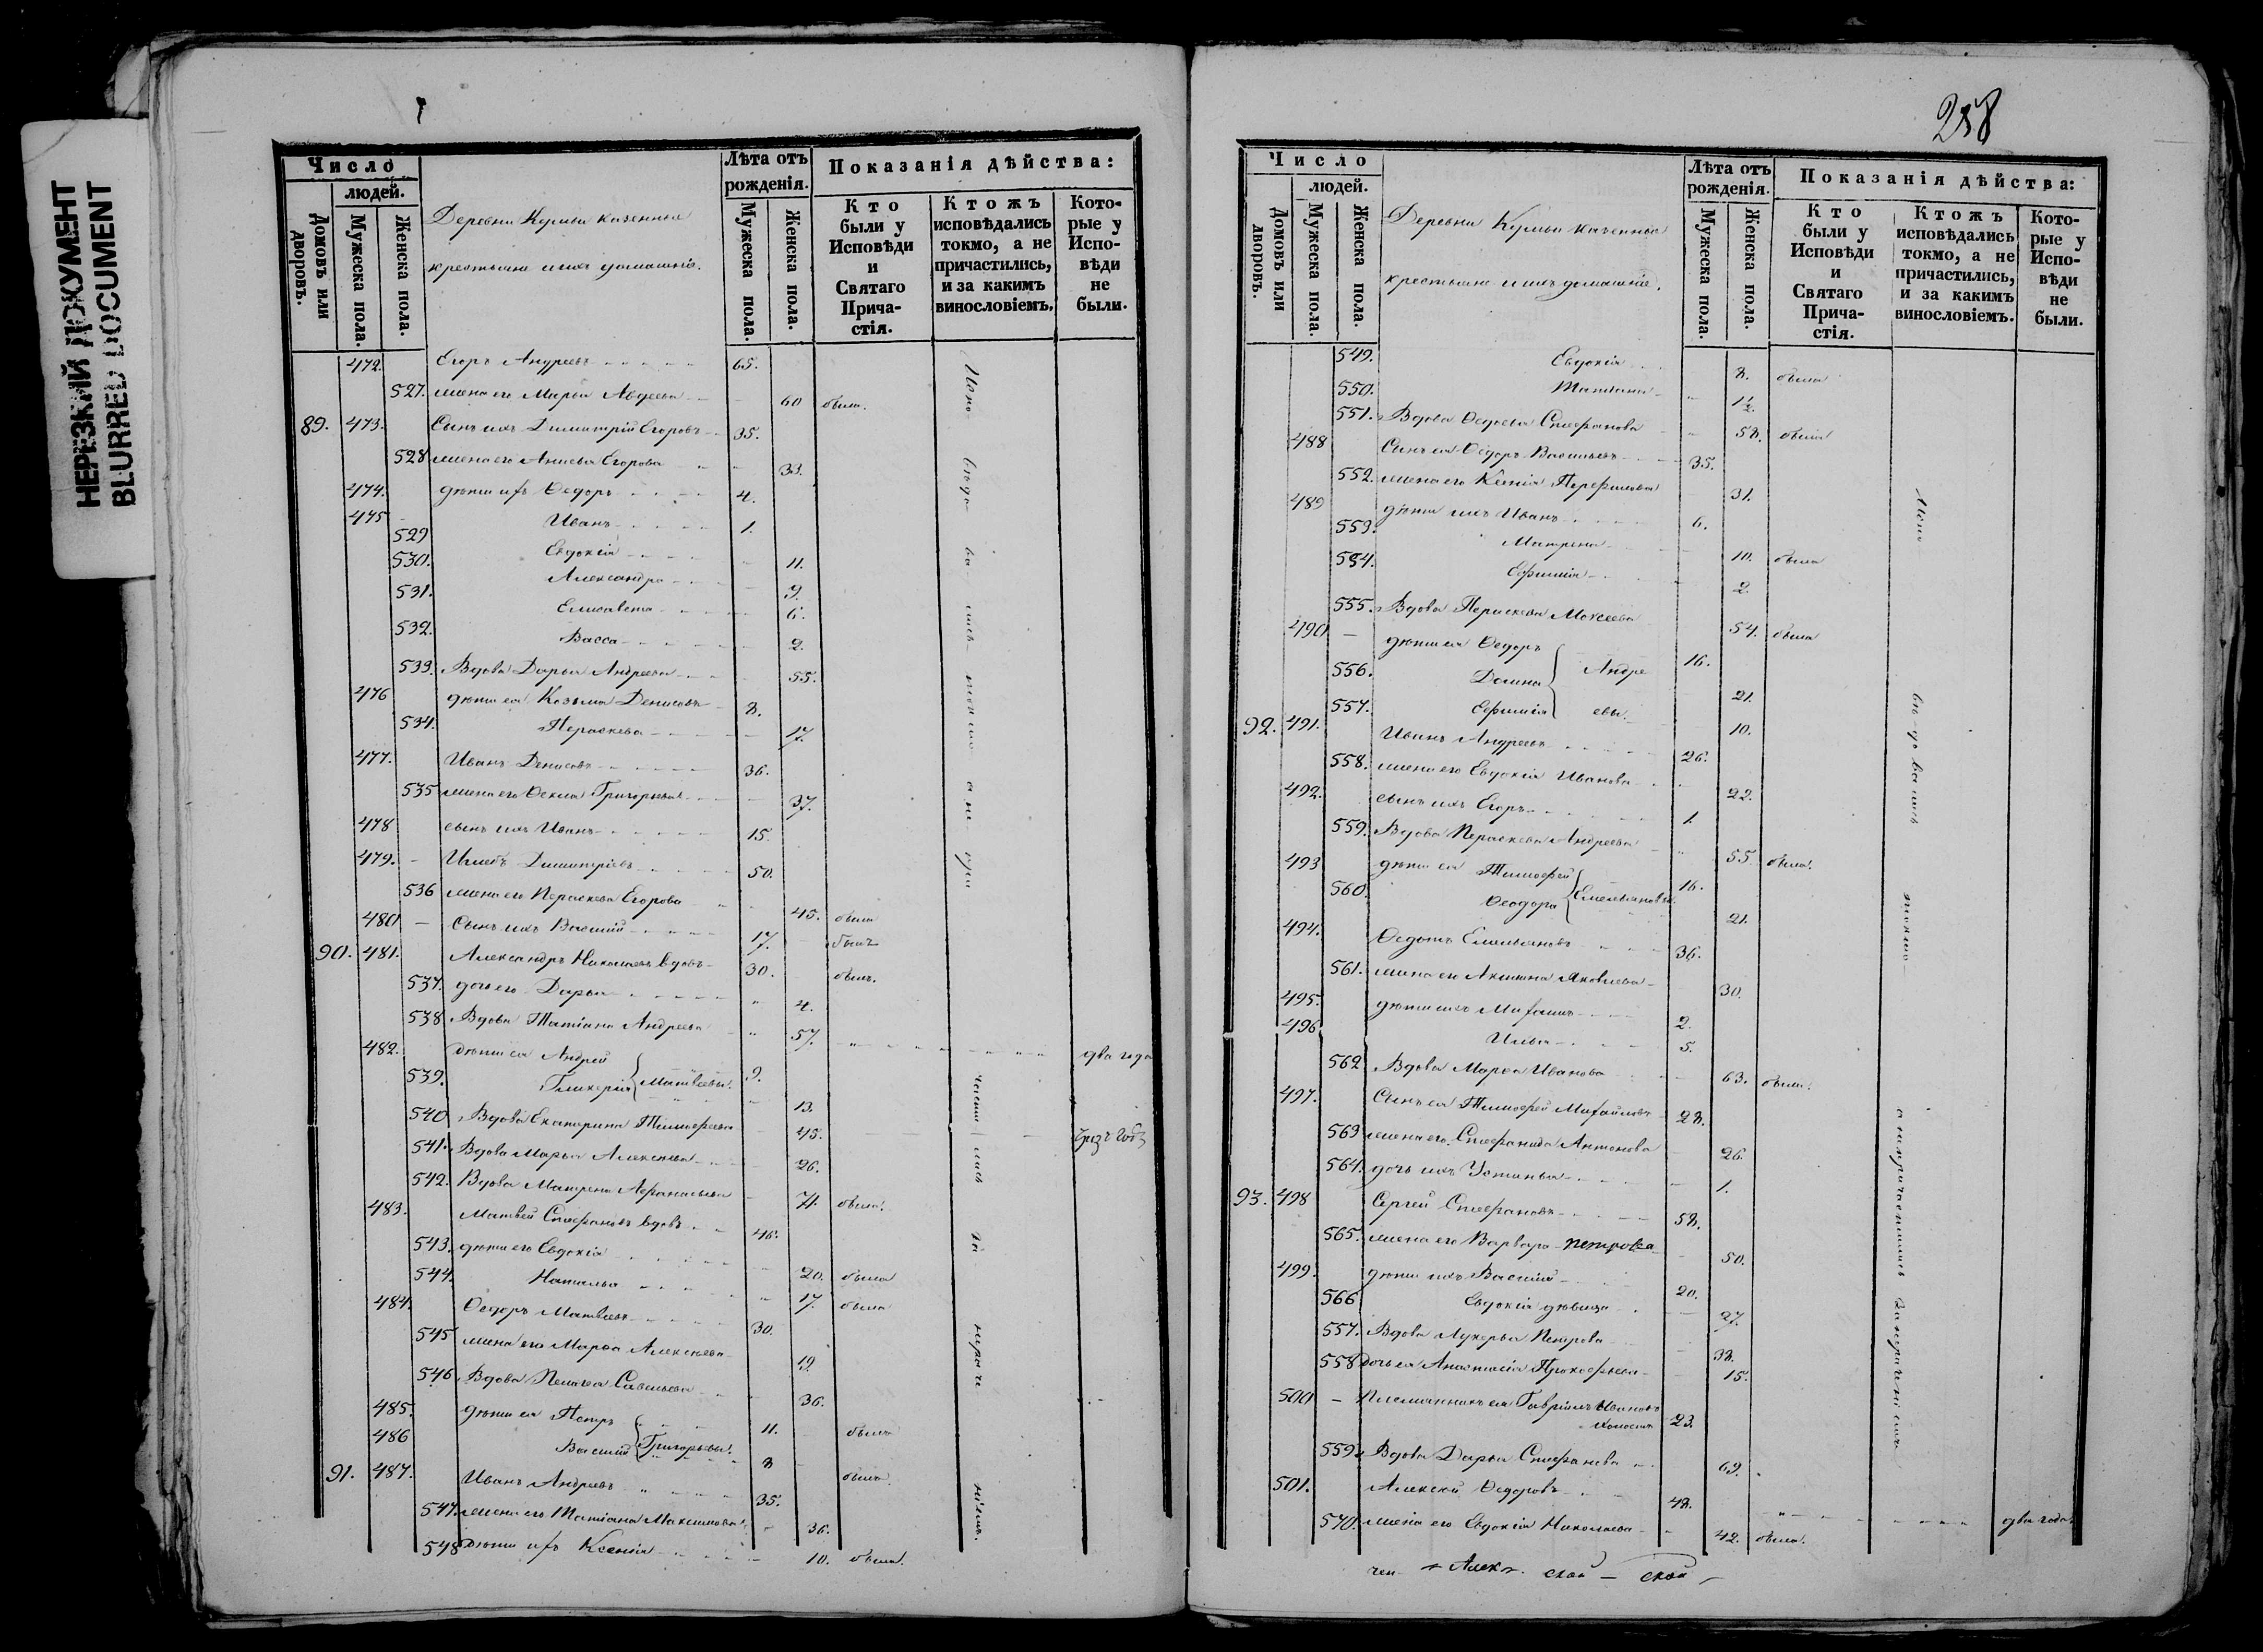 НЕРЕЗКИЙ ДОКУМЕНТ
BLURRED DOCUMENT
Число
людей.
Домовъ или дворовъ.
Мужеска пола.
Женска пола.
Деревни казенные
крестьяне и ихъ домашніе.
Лѣта отъ рожденія.
Мужеска пола.
Женска пола.
Показанія дѣйства:
Кто были у Исповѣди и Святаго Прича-стія.
Ктожъ исповѣдались токмо, а не причастились, и за какимъ винословіемъ.
Кото-рые у Испо-вѣди не были.
472. Егоръ Андреевъ 65.
527. жена его Марья Авдеева 60 была.
89. 473. Сынъ ихъ Димитрій Егоровъ 35.
528 жена его Егорова 33.
474. дѣти ихъ Ѳедоръ 4.
475 Иванъ 1.
529 Евдокія 11.
530. Александра 9.
531. Елисавета 6.
532. Васса 2.
533. Вдова Дарья Андреева 55.
476 дѣти ея Козьма Денисовъ 8.
534. Параскева 17.
477. Иванъ Денисовъ 36.
535 жена его Ѳекла Григорьева 37.
478 сынъ ихъ Иванъ 15.
479. Димитріевъ 50.
536 жена его Параскева Егорова 45. была
480 Сынъ ихъ Василій 17. былъ
90. 481. Александръ Николаевъ вдовъ 30. былъ.
537. дочь его Дарья 4.
538 Вдова Татіана Андреева 57. два года
482. дѣти ея Андрей 9.
539. Гликерія Матвѣевы. 13.
540 Вдова Екатерина Тимофеева 45.
541. Вдова Марья Алексѣева 26.
542. Вдова Матрена Афанасьева 71. была.
483. Матвей Стефановъ вдовъ 46.
543. дѣти его Евдокія 20. была
544. Наталья 17. была
484. Ѳедоръ Матвѣевъ 30.
545 жена его Марья Алексѣева 19.
546. Вдова Пелагея Савельева 36.
485. дѣти ея Петръ 11. былъ
486 Василій Григорьевы. 8 былъ.
91. 487. Иванъ Андреевъ 35.
547. жена его Татіана Максимова 36.
548 дѣти ихъ Ксенія 10. была.
258
Число
людей.
Домовъ или дворовъ.
Мужеска пола.
Женска пола.
Деревни казенные
крестьяне и ихъ домашніе.
Лѣта отъ рожденія.
Мужеска пола.
Женска пола.
Показанія дѣйства:
Кто были у Исповѣди и Святаго Прича-стія.
Ктожъ исповѣдались токмо, а не причастились, и за какимъ винословіемъ.
Кото-рые у Испо-вѣди не были.
549. Евдокія 8. была
550. Татіана 1½.
551. Вдова Ѳедосья Стефанова 58. была
488 Сынъ ея Ѳедоръ Васильевъ 35.
552. жена его Ксенія 31.
489 дѣти ихъ Иванъ 6.
553. Матрена 10. была
554. Ефимія 2
555. Вдова Параскева Моисеева 54. была
490 дѣти ея Ѳедоръ 16.
556. Домна Андре 21.
557. Ефимія евы. 10.
92. 491. Иванъ Андреевъ 26.
558. жена его Евдокія Иванова 22.
492. сынъ ихъ Егоръ 1.
559. Вдова Параскева Андреева 55. была.
493 дѣти ея Тимофей 16.
560. Ѳеодора Емельяновы. 21.
494. Ѳедотъ Емельяновъ 36.
561. жена его Акилина Яковлева 30.
495. дѣти ихъ Михаилъ 2.
496 Илья 5.
562 Вдова Марья Иванова 63. была.
497. Сынъ ея Тимофей Михайловъ 28.
563 жена его Стефанида Антонова 26
564. дочь ихъ Устинья 1.
93. 498 Сергей Стефановъ 58.
565. жена его Варвара Петрова 50.
499. дѣти ихъ Василій 20.
566 Евдокія дѣвица 27.
557. Вдова Лукерья Петрова 38.
558 Дочь ея Анастасія Прокофьева 15.
500 Племянникъ ея Гавріилъ Ивановъ
холостъ 23.
559. Вдова Дарья Стефанова 69.
501. Алексѣй Ѳедоровъ 48. два года.
570. жена его Евдокія Николаева 42. была.